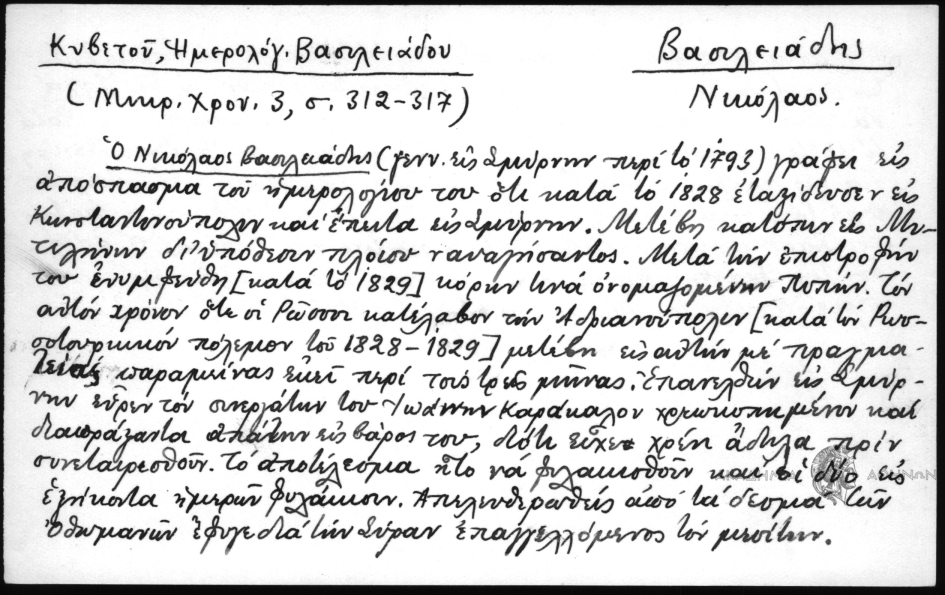 Κυβετοῦ, Ἡμερολόγ. Βασιλειάδου
Βασιλειάδης
(Μικρ. Χρον. 3, σ. 312-317)
Νικόλαος.
Ὁ Νικόλαος Βασιλειάδης (γενν. εἰς Σμύρνην περί τό 1793) γράφει εἰς
ἀπόσπασμα τοῦ ἡμερολογίου του ὅτι κατά τό 1828 ἐταξίδευσεν εἰς
Κωνσταντινούπολιν καί ἔπειτα εἰς Σμύρνην. Μετέβη κατόπιν εἰς Μυ-
τιλήνην δι' ὑπόθεσιν πλοίου ναυαγήσαντος. Μετά τήν ἐπιστροφήν
του ἐνυμφεύθη [κατά τό 1829] κόρην τινά ὀνομαζομένην Ποπήν. Τόν
αὐτόν χρόνον ὅτε οἱ Ρῶσσοι κατέλαβον τήν Ἀδριανούπολιν [κατά τόν Ρωσ-
σοτουρκικόν πόλεμον τοῦ 1828-1829] μετέβη εἰς αὐτήν μέ πραγμα-
τείας παραμείνας ἐκεῖ περί τούς τρεῖς μῆνας. Ἐπανελθών εἰς Σμύρ-
νην εὗρεν τόν συνεργάτην του Ἰωάννην Καράκαλον χρεωκοπημένον καί
διαπράξαντα ἀπάτην εἰς βάρος του, διότι εἶχε χρέη ἄδηλα πρίν
συνεταιρισθοῦν. Τό ἀποτέλεσμα ἦτο νά φυλακισθοῦν καί οἱ δύο εἰς
ἑξήκοντα ἡμερῶν φυλάκισιν. Ἀπελευθερωθείς ἀπό τά δεσμά τῶν
Ὀθωμανῶν ἔφυγε διά τήν Σύραν ἐπαγγελλόμενος τόν μεσίτην.